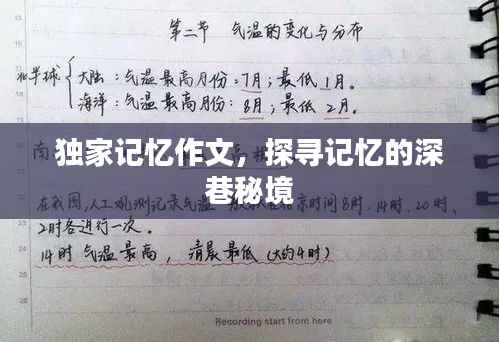 第二节 气温的变化与分布
北半球 大陆：气温最高月份：7月；最低1月。
海洋：气温最高月份：8月；最低2月。
独家记忆作文，探寻记忆的深
巷秘境
在我国，人工观测记录气温，一般 时间8时、14时、20时、
2时各进行一次。
14时气温最高，清晨最低（大约4时）
Recording start from here